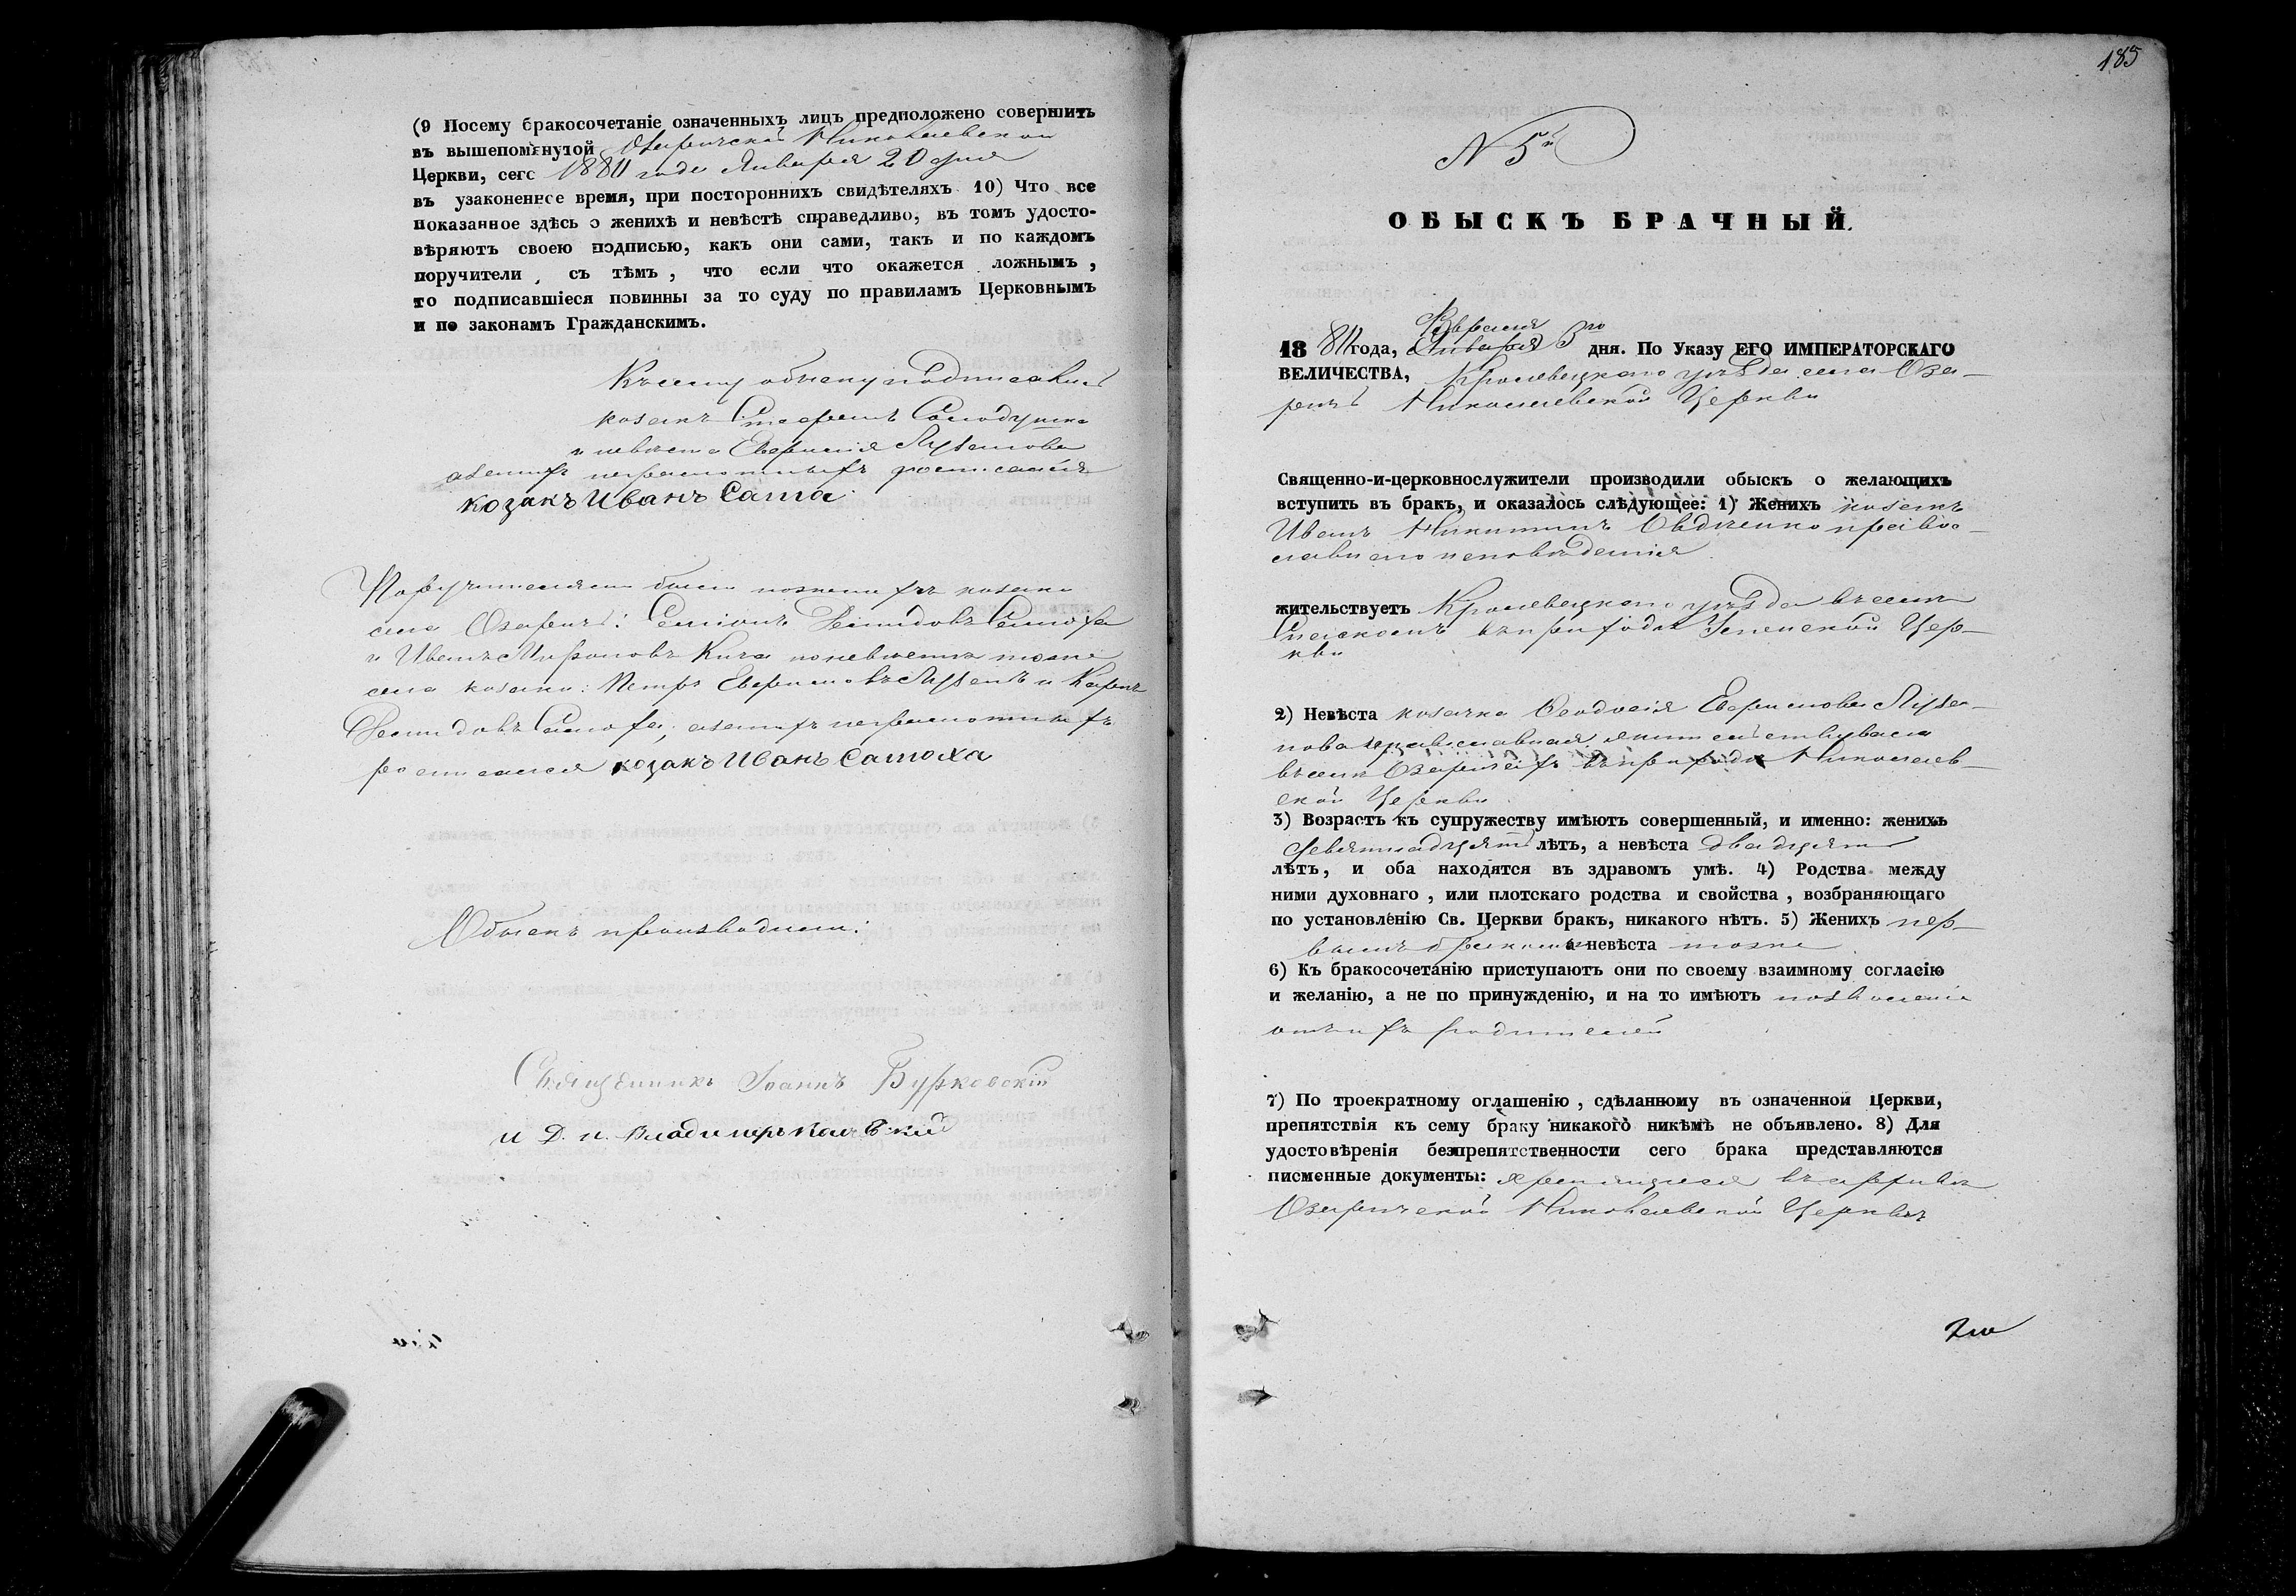 (9 Посему бракосочетаніе означенныхъ лицъ предположено совершить
въ вышепомянутой Озаричской Николаевской
Церкви, сего 1880 года Января 20 дня
въ узаконенное время, при постороннихъ свидѣтеляхъ 10) Что все
показанное здѣсь о женихѣ и невѣстѣ справедливо, въ томъ удосто-
вѣряютъ своею подписью, какъ они сами, такъ и по каждомъ
поручители, съ тѣмъ, что если что окажется ложнымъ,
то подписавшіеся повинны за то суду по правиламъ Церковнымъ
и по законамъ Гражданскимъ.
Къ сему обыску подписались
козакъ Стефанъ
и невѣста Евфимія Лузанова
а за нихъ неграмотныхъ росписался
козакъ Иванъ Само
Поручителями были по женихѣ козаки
села Озаричъ: Семіонъ Демидовъ Самоха
и Иванъ Мироновъ Кича по невѣстѣ того же
села козаки: Петръ Евфимовъ Лузанъ и Карпъ
Демидовъ Самоха, а за нихъ неграмотныхъ
росписался козакъ Иванъ Самоха
Обыскъ производили:
Священникъ Іоаннъ Бурковскій
и Д. п. Владимиръ
185
N 5й
ОБЫСКЪ БРАЧНЫЙ.
Февраля
18 года, Января 3го дня. По Указу ЕГО ИМПЕРАТОРСКАГО
ВЕЛИЧЕСТВА, Кролевецкаго уѣзда села Оза-
ричъ Николаевской Церкви
Священно-и-церковнослужители производили обыскъ о желающихъ
вступить въ бракъ, и оказалось слѣдующее: 1) Женихъ козакъ
Иванъ Никитинъ Овдѣенко право-
славнаго исповѣданія
жительствуетъ Кролевецкаго уѣзда въ селѣ
Спаскомъ въ приходѣ Успенской Цер-
кви
2) Невѣста козачка Феодосія Евфимова Луза-
нова православная, жительствовала
въ селѣ Озаричахъ въ приходѣ Николаев-
ской Церкви
3) Возрастъ къ супружеству имѣютъ совершенный, и именно: женихъ
девятнадцять лѣтъ, а невѣста двадцять
лѣтъ, и оба находятся въ здравомъ умѣ. 4) Родства между
ними духовнаго, или плотскаго родства и свойства, возбраняющаго
по установленію Св. Церкви бракъ, никакого нѣтъ. 5) Женихъ пер-
вымъ бракомъ а невѣста тоже
6) Къ бракосочетанію приступаютъ они по своему взаимному согласію
и желанію, а не по принужденію, и на то имѣютъ позволеніе
отъ ихъ родителей
7) По троекратному оглашенію, сдѣланному въ означенной Церкви,
препятствія къ сему браку никакого никѣмъ не объявлено. 8) Для
удостовѣренія безпрепятственности сего брака представляются
писменные документы: хранящіеся въ архивѣ
Озаричской Николаевской Церкви